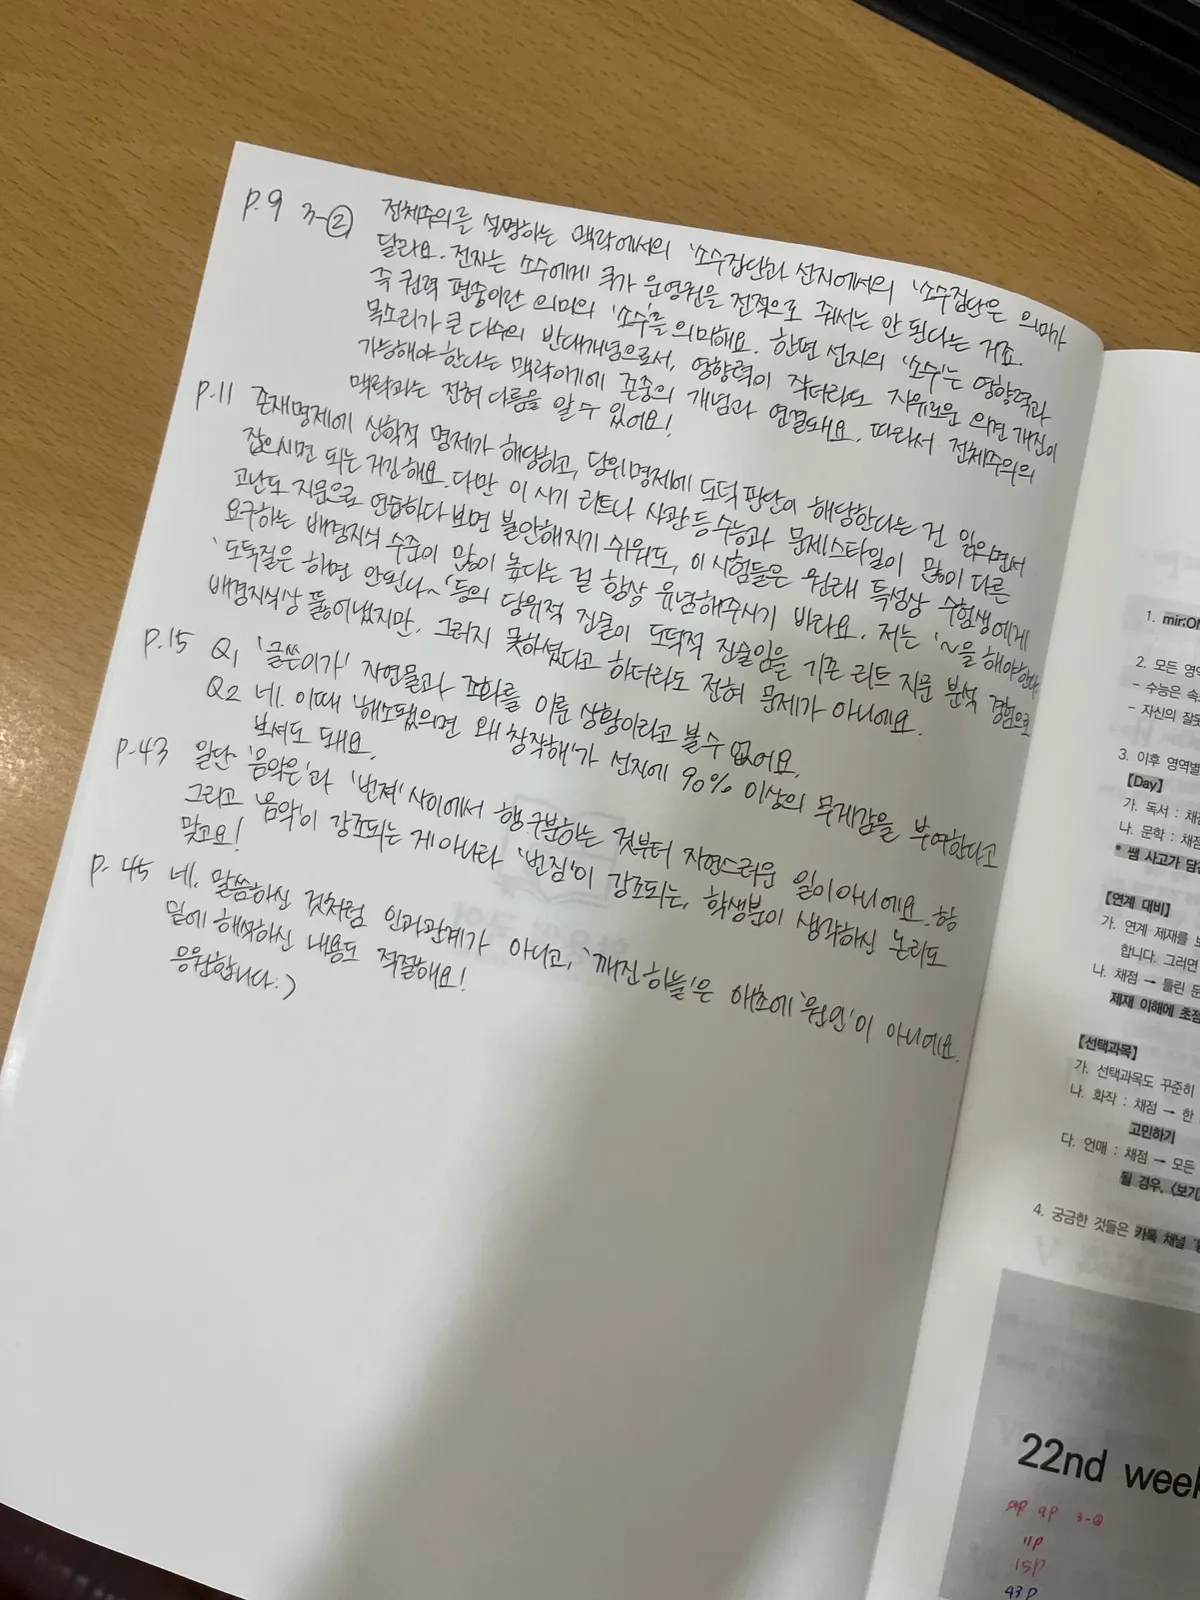 p.9 3-② 전체주의를 설명하는 맥락에서의 '소수집단'과 선지에서의 '소수집단'은 의미가
달라요. 전자는 소수에게 국가 운영권을 전적으로 줘서는 안 된다는 거죠.
즉 권력 편중이란 의미의 '소수'를 의미해요. 한편 선지의 '소수'는 영향력과
목소리가 큰 다수의 반대개념으로서, 영향력이 작더라도 자유로운 의견 개진이
가능해야 한다는 맥락이기에 존중의 개념과 연결돼요. 따라서 전체주의의
맥락과는 전혀 다름을 알 수 있어요!
p.11 존재명제에 신학적 명제가 해당하고, 당위명제에 도덕 판단이 해당한다는 건 읽으면서
잡으시면 되는 거긴 해요. 다만 이 시기 리트나 사관 등 수능과 문제스타일이 많이 다른
고난도 지문으로 연습하다 보면 불안해지기 쉬워도, 이 시험들은 원래 특성상 수험생에게
요구하는 배경지식 수준이 많이 높다는 걸 항상 유념해주시기 바라요. 저는 '~을 해야한다',
'도둑질은 하면 안된다~' 등의 당위적 진술이 도덕적 진술임을 기존 리트 지문 분석 경험으로
배경지식상 뚫어냈지만, 그러지 못하셨다고 하더라도 전혀 문제가 아니에요.
p.15 Q1 '글쓴이가' 자연물과 조화를 이룬 상황이라고 볼 수 없어요.
Q2 네. 이때 '해소됐으면 왜 창작해'가 선지에 90% 이상의 무게감을 부여한다고
보셔도 돼요.
p.43 일단 '음악은'과 '번져' 사이에서 행 구분하는 것부터 자연스러운 일이 아니에요.
그리고 '음악'이 강조되는 게 아니라 '번짐'이 강조되는, 학생분이 생각하신 논리도
맞고요!
p.45 네. 말씀하신 것처럼 인과관계가 아니고, '깨진 하늘'은 애초에 '원인'이 아니에요.
밑에 해석하신 내용도 적절해요!
응원합니다:)
1. mir:O
2. 모든 영역
- 수능은 속
- 자신의 잘못
3. 이후 영역별
[Day]
가. 독서 : 채점
나. 문학 : 채점
* 쌤 사고가 담
[연계 대비]
가. 연계 제재를 보
합니다. 그러면
나. 채점 → 틀린 문
제재 이해에 초점
[선택과목]
가. 선택과목도 꾸준히
나. 화작 : 채점 → 한
고민하기
다. 언매 : 채점 → 모든
될 경우, <보기
4. 궁금한 것들은 카톡 채널
22nd week
9p 3-②
11p
15p
43p